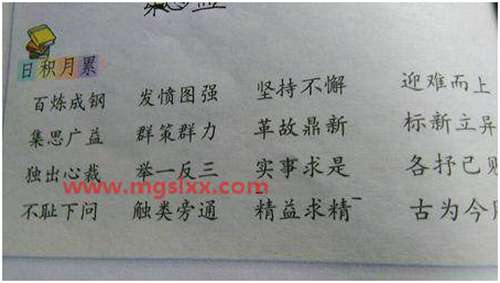 日积月累
百炼成钢 发愤图强 坚持不懈 迎难而上
集思广益 群策群力 革故鼎新 标新立异
独出心裁 举一反三 实事求是 各抒己
www.mgslxx.com
不耻下问 触类旁通 精益求精 古为今